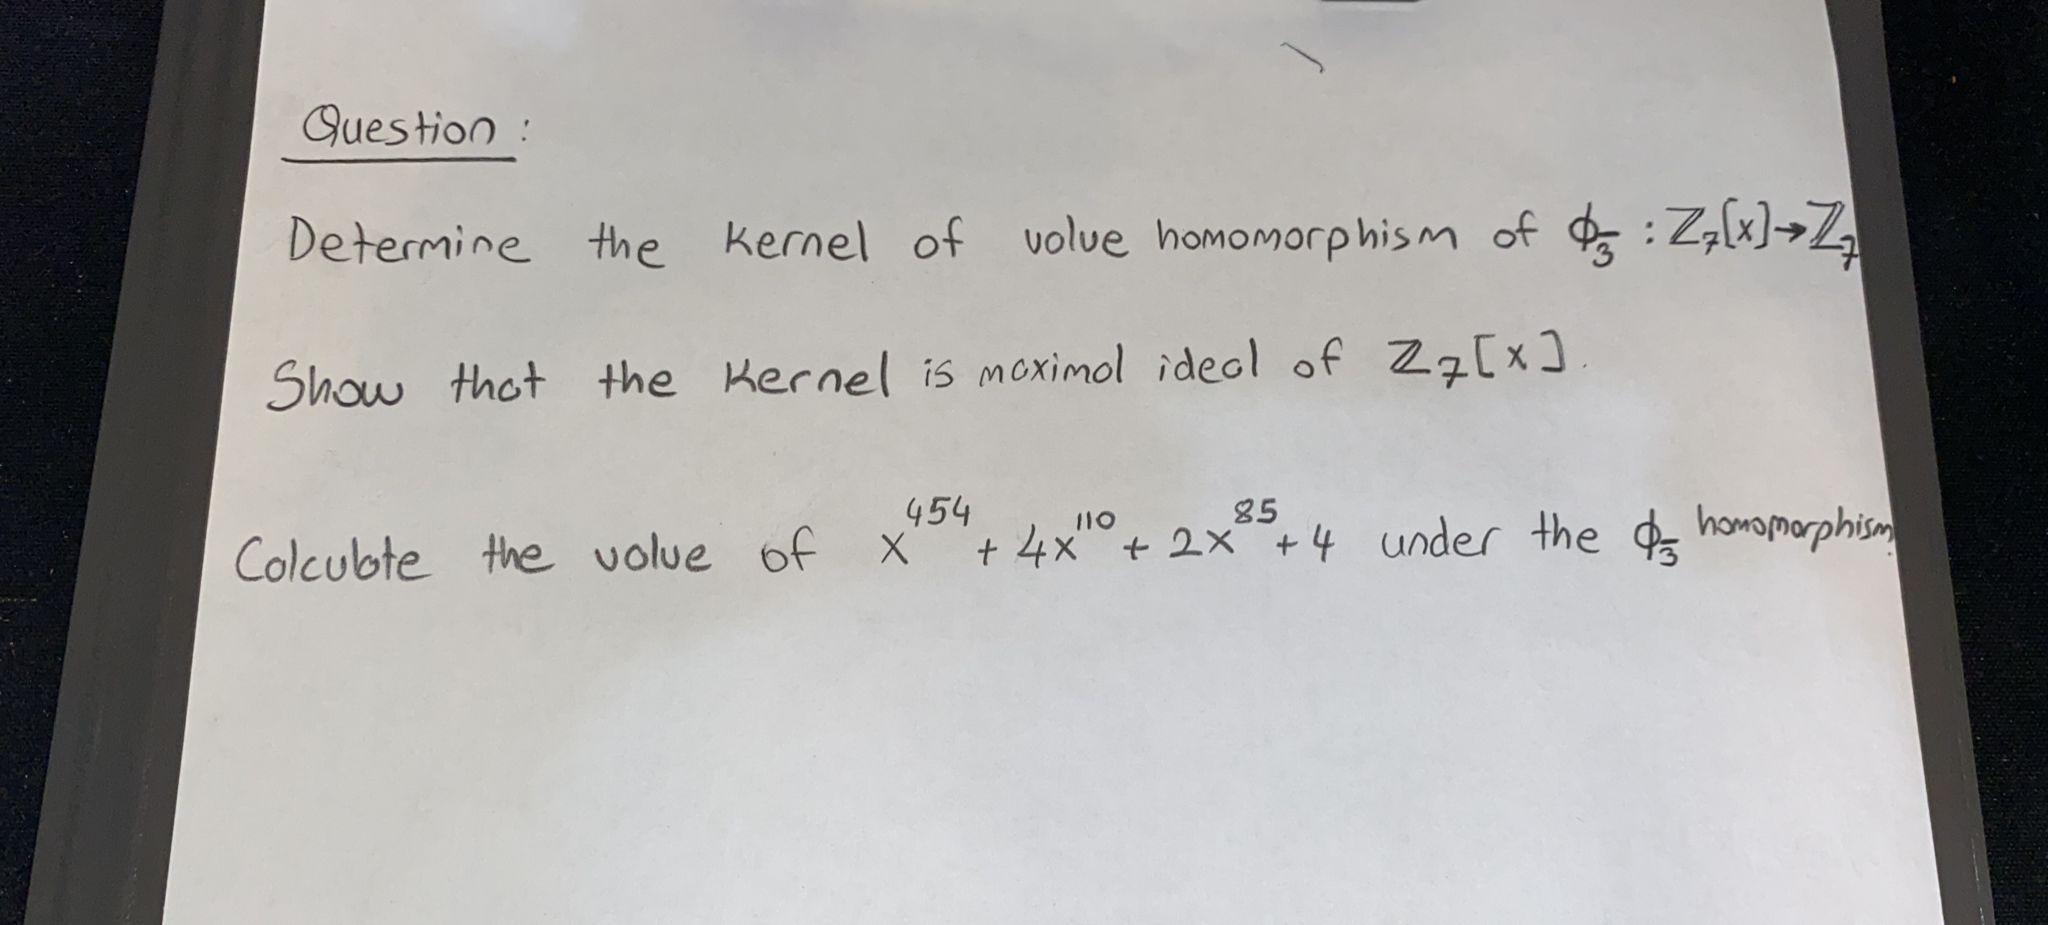 Question :
Determine the kernel of value homomorphism of ϕ_3̅ : ℤ₇[x]→ℤ₇
Show that the kernel is maximal ideal of ℤ₇[x].
Calculate the value of x⁴⁵⁴ + 4x¹¹⁰ + 2x⁸⁵ + 4 under the ϕ_3̅ homomorphism.